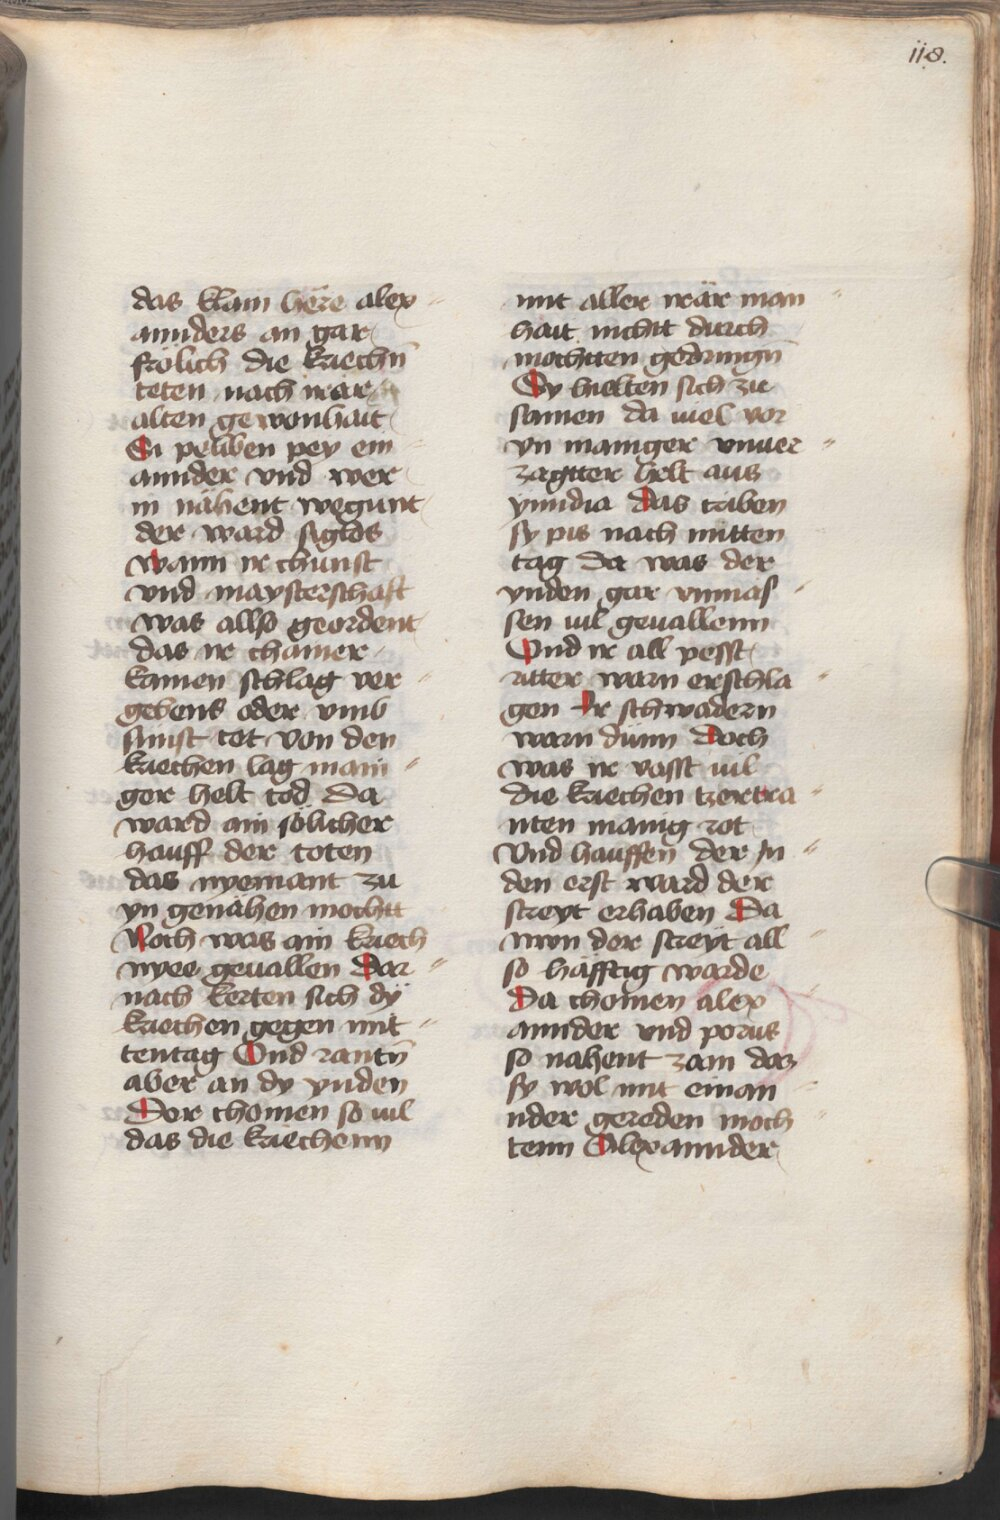 118.
das klain hëre alex
annders an gar
frölich die kriechn̄
teten nach irrär
alten gewonhait
Si peliben pey ein
annder vnd wer
in nähent wegunt
der ward siglos
wann ir chunst
vnd maysterschaft
was allso geordent
das ir chainer
kainen schlag ver
gebens oder vmb
sünst tet von den
kriechen lag mani
ger helt tod Da
ward ain sölicher
hauff der toten
das nyemant zu
yn genahen mochtt
Noch was ain kriech
nyee geuallen Dar
nach kerten sich dÿ
kriechen gegen mit
tentag Vnd rantn̄
aber an dy ynden
Der chomen so uil
das die kriechenn
mit aller irrär man
hait nichtt durch
mochtten gedringn̄
Sy hielten sich zu
samen da uiel vor
yn maniger vnuer
zagtter helt aus
yinndia Das triben
sy pis nach mitten
tag Da was der
ynden gar vnmas
sen uil geuallenn
Vnd ir all pesst
ritter warn erschla
gen Ir schwadern
warn dünn Doch
was ir vasst uil
die kriechen tzertra
nten manig rot
Vnd hauffen der in
den erst ward der
streyt erhaben Da
nwn der streÿt all
so häfftig warde
Da chomen alex
annder vnd porus
so nahent zam das
sy wol mit einan
nder gereden moch
tenn Alexannder